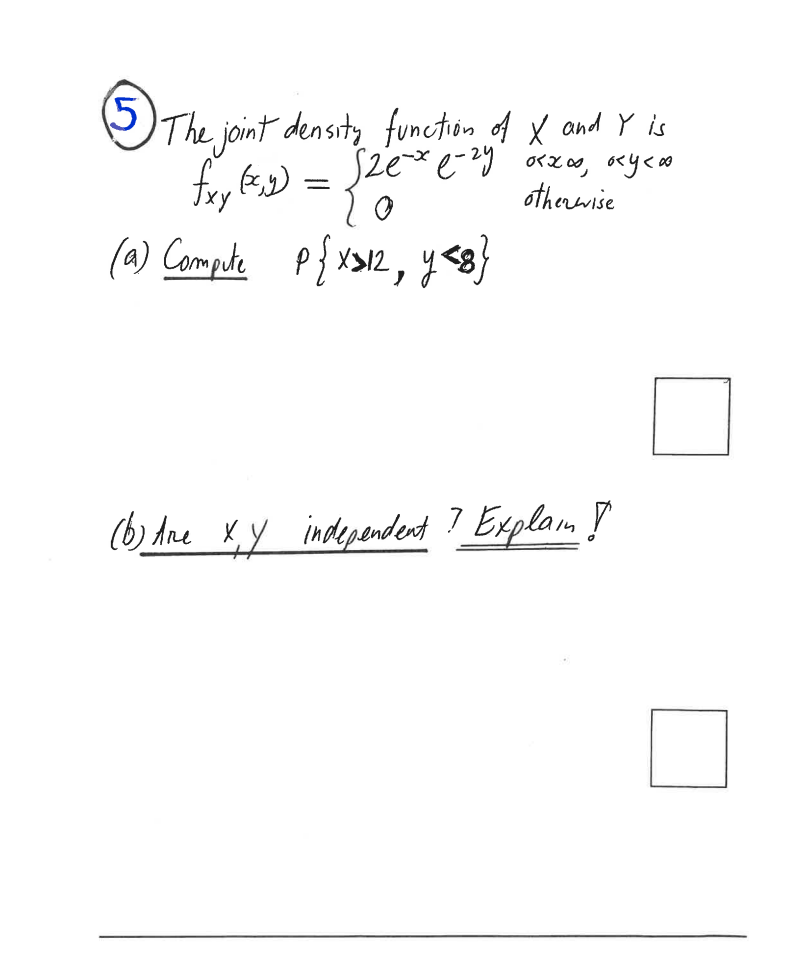 5 The joint density function of X and Y is
fxy (x,y) = { 2e^-x e^-2y 0<x∞, 0<y<∞
0 otherwise
(a) Compute P{X>12, y<8}
(b) Are x,y independent? Explain!